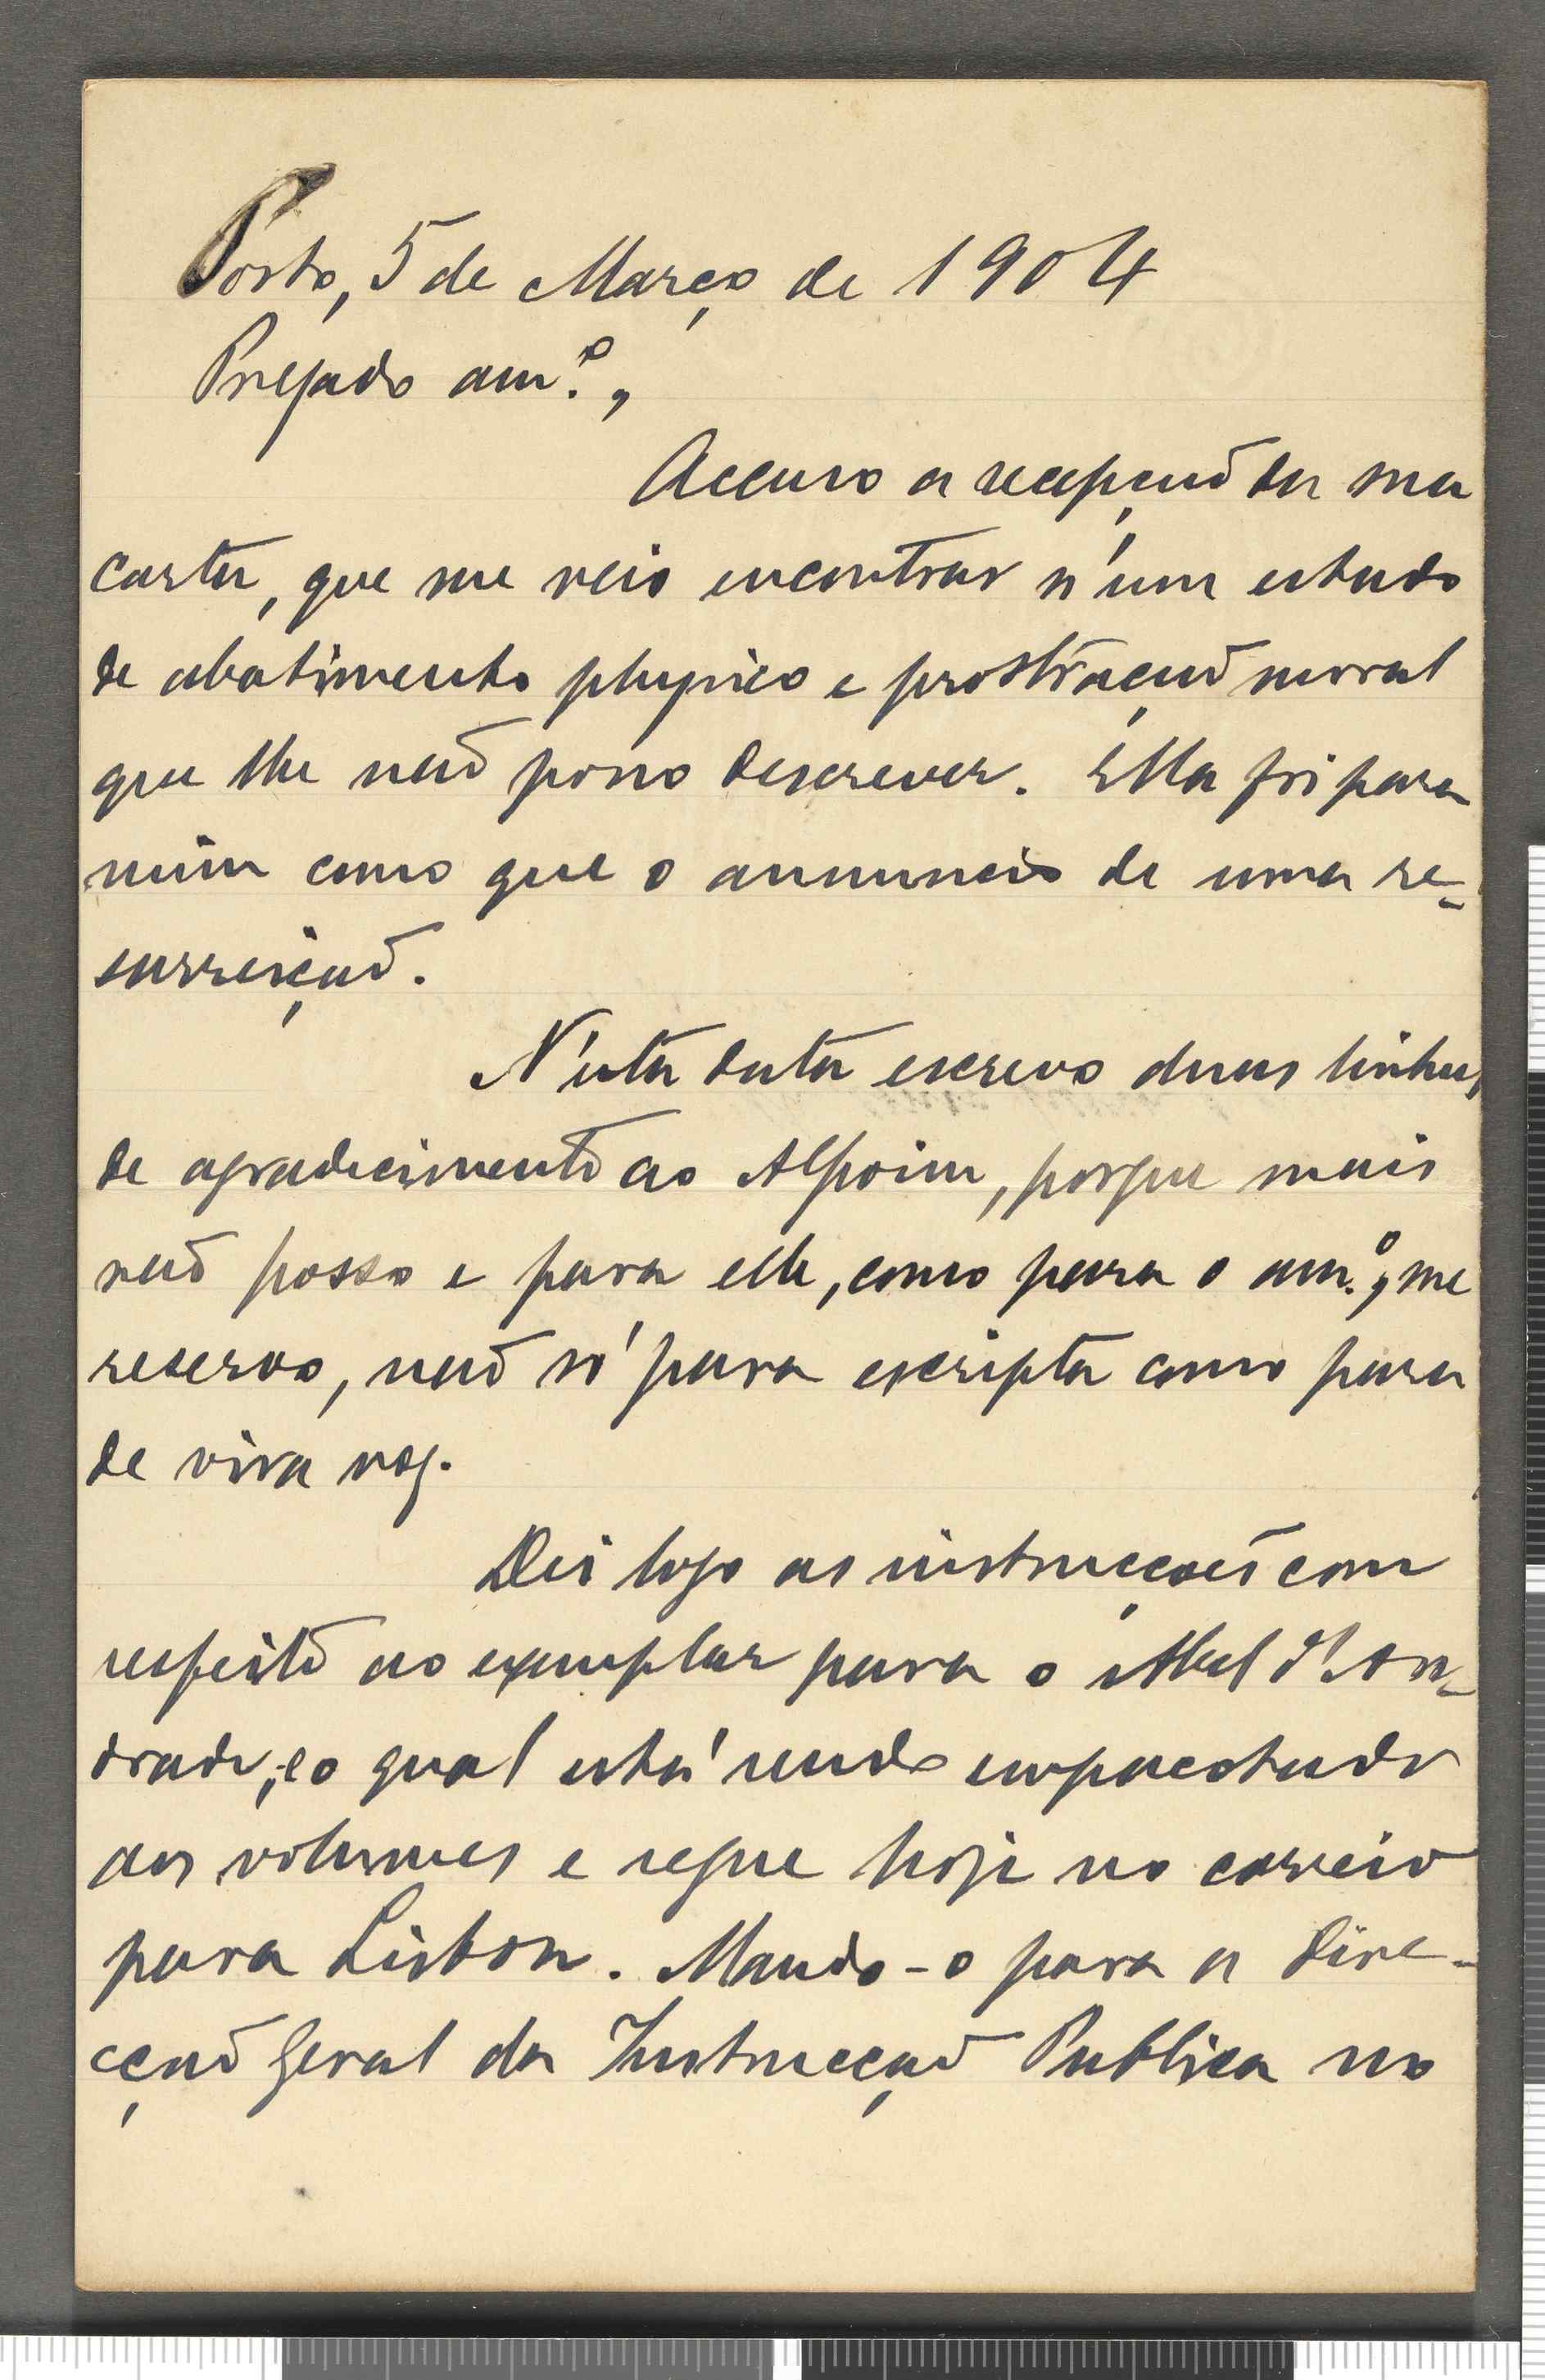 Porto, 5 de Março de 1904
Presado am.º,
Accuso a recepção da sua
carta, que me veio encontrar n'um estado
de abatimento physico e prostração moral
que lhe não posso descrever. Ella foi para
mim como que o annuncio de uma re-
surreição.
N'esta data escrevo duas linhas
de agradecimento ao Alpoim, porque mais
não posso e para elle, como para o am.º, me
reservo, não só para escripta como para
de viva voz.
Dei logo as instrucções com
respeito ao exemplar para o Abel d'An-
drade, o qual está sendo empacotado
aos volumes e segue hoje no correio
para Lisboa. Mando-o para a Dire-
cção Geral da Instrucção Publica no